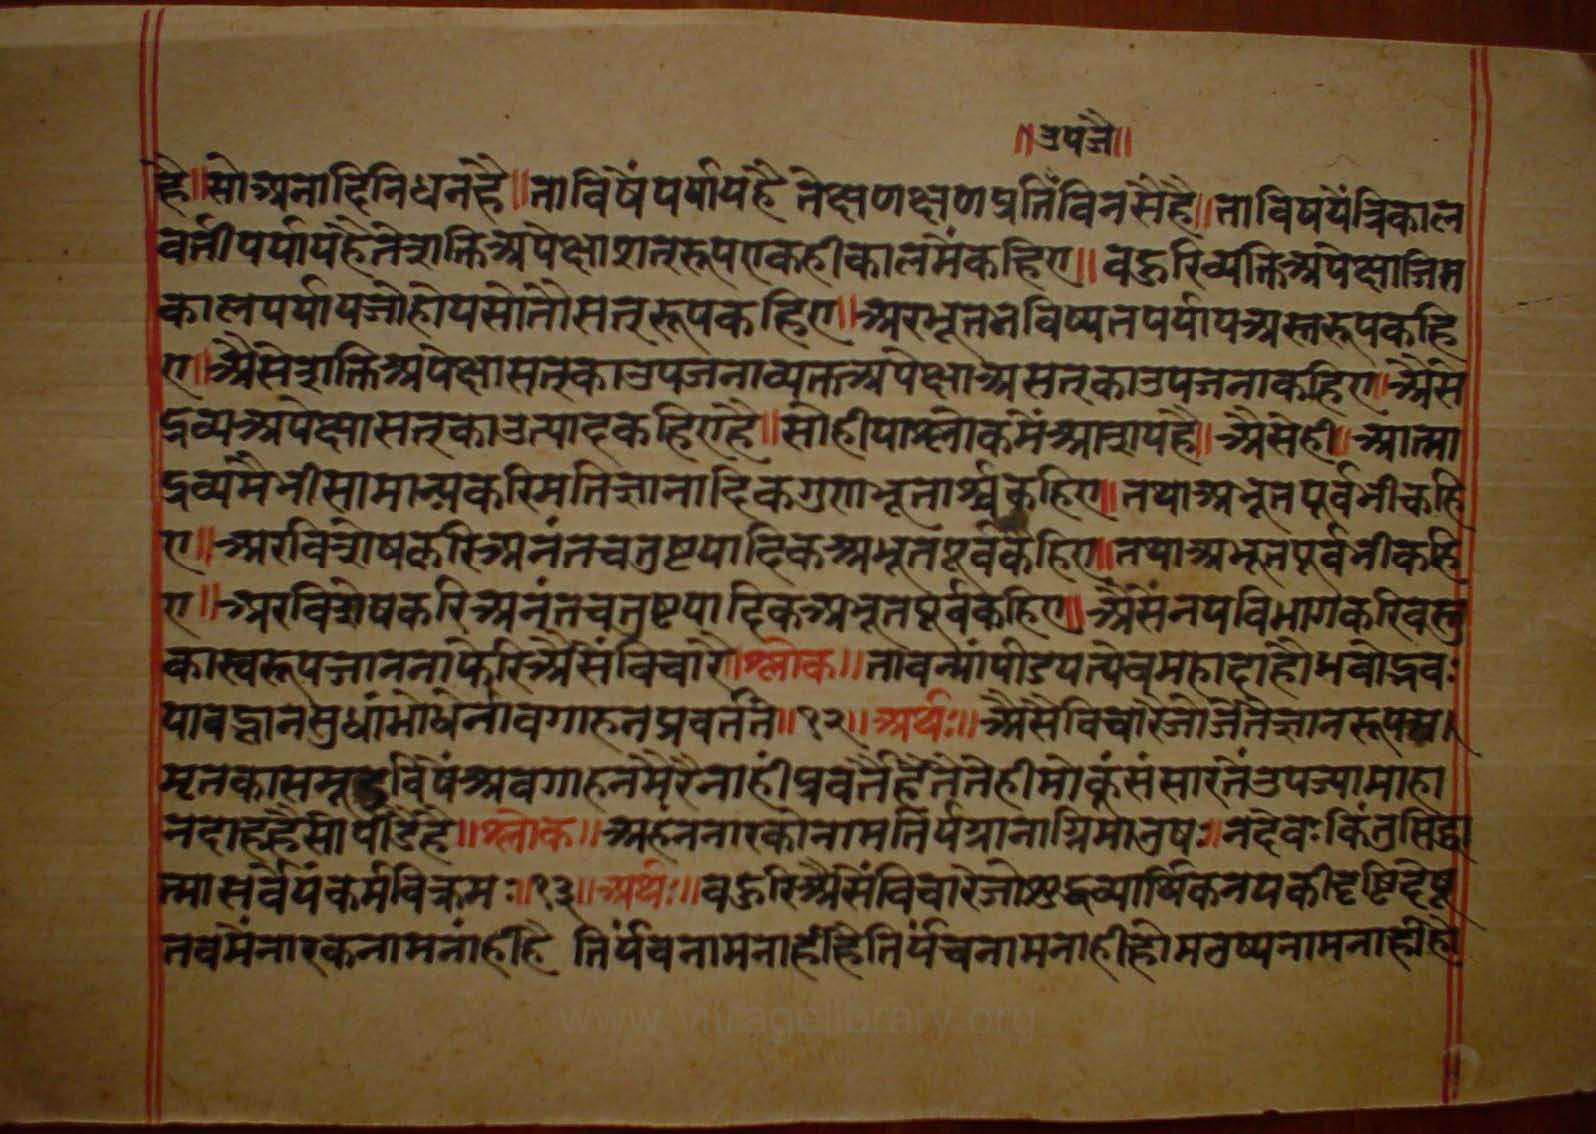 ॥उपजै॥
है॥सोअनादिनिधनहै॥ताविषैंपर्यायहै तेक्षणक्षणप्रतिंविनसैहै॥ताविषयैंत्रिकाल
वर्तीपर्यायहैतेशक्तिअपेक्षाशत्‌रूपएकहीकालमैंकहिए॥बहुरिव्यक्तिअपेक्षाजिस
कालपर्यायजोहोयसोतौसत्‌रूपकहिए॥अरभूतभविष्यतपर्यायअसत्तरूपकहि
ए॥अैसेशक्तिअपेक्षासत्‌काउपजनाव्यक्तअपेक्षाअसत्‌काउपजनाकहिए॥अैसे
द्रव्यअपेक्षासत्‌काउत्पादकहिएहै॥सोहीयाश्लोकमैंआशयहै॥अैसेही॥आत्मा
द्रव्यमैभीसामान्यकरिमतिज्ञानादिकगुणभूतार्थकहिए॥तथाअभूतपूर्वभीकहि
ए॥अरविशेषकरिअनंतचतुष्टयादिकअभूतपूर्वकहिए॥तथाअभूतपूर्वभीकहि
ए॥अरविशेषकरिअनंतचतुष्टयादिकअभूतपूर्वकहिए॥अैसेंनयविभागकरिवस्तु
कास्वरूपजाननाफेरिअैसेंविचारै॥श्लोक॥तावन्मांपीडयत्येवमहादाहोभवोद्भवः
यावद्ज्ञानसुधांभोधेर्नावगाहनप्रवर्तते॥१२॥अर्थः॥अैसैविचारेजोजेतैज्ञानरूपस॥
मृतकासमूद्रविषेंअवगाहनमेरैनाहींप्रवर्तैहैतेतेहीमोकूंसंसारतेंउपज्यामाहा
नदाहहैसोपीडैहै॥श्लोक॥अहंननारकोनामतिर्यग्नानापिमानुषः॥नदेवःकिंतुसिद्धा
त्मासर्वैयंकर्मविक्रमः॥१३॥अर्थः॥बहुरिअैसेंविचारेजोशुद्धव्यार्थिकनयकीदृष्टिदेषू
तबमैंनारकनामनांहीहै तिर्यंचनामनाहींहैतिर्यंचनामनाहीहौमनुष्यनामनाहीहौ